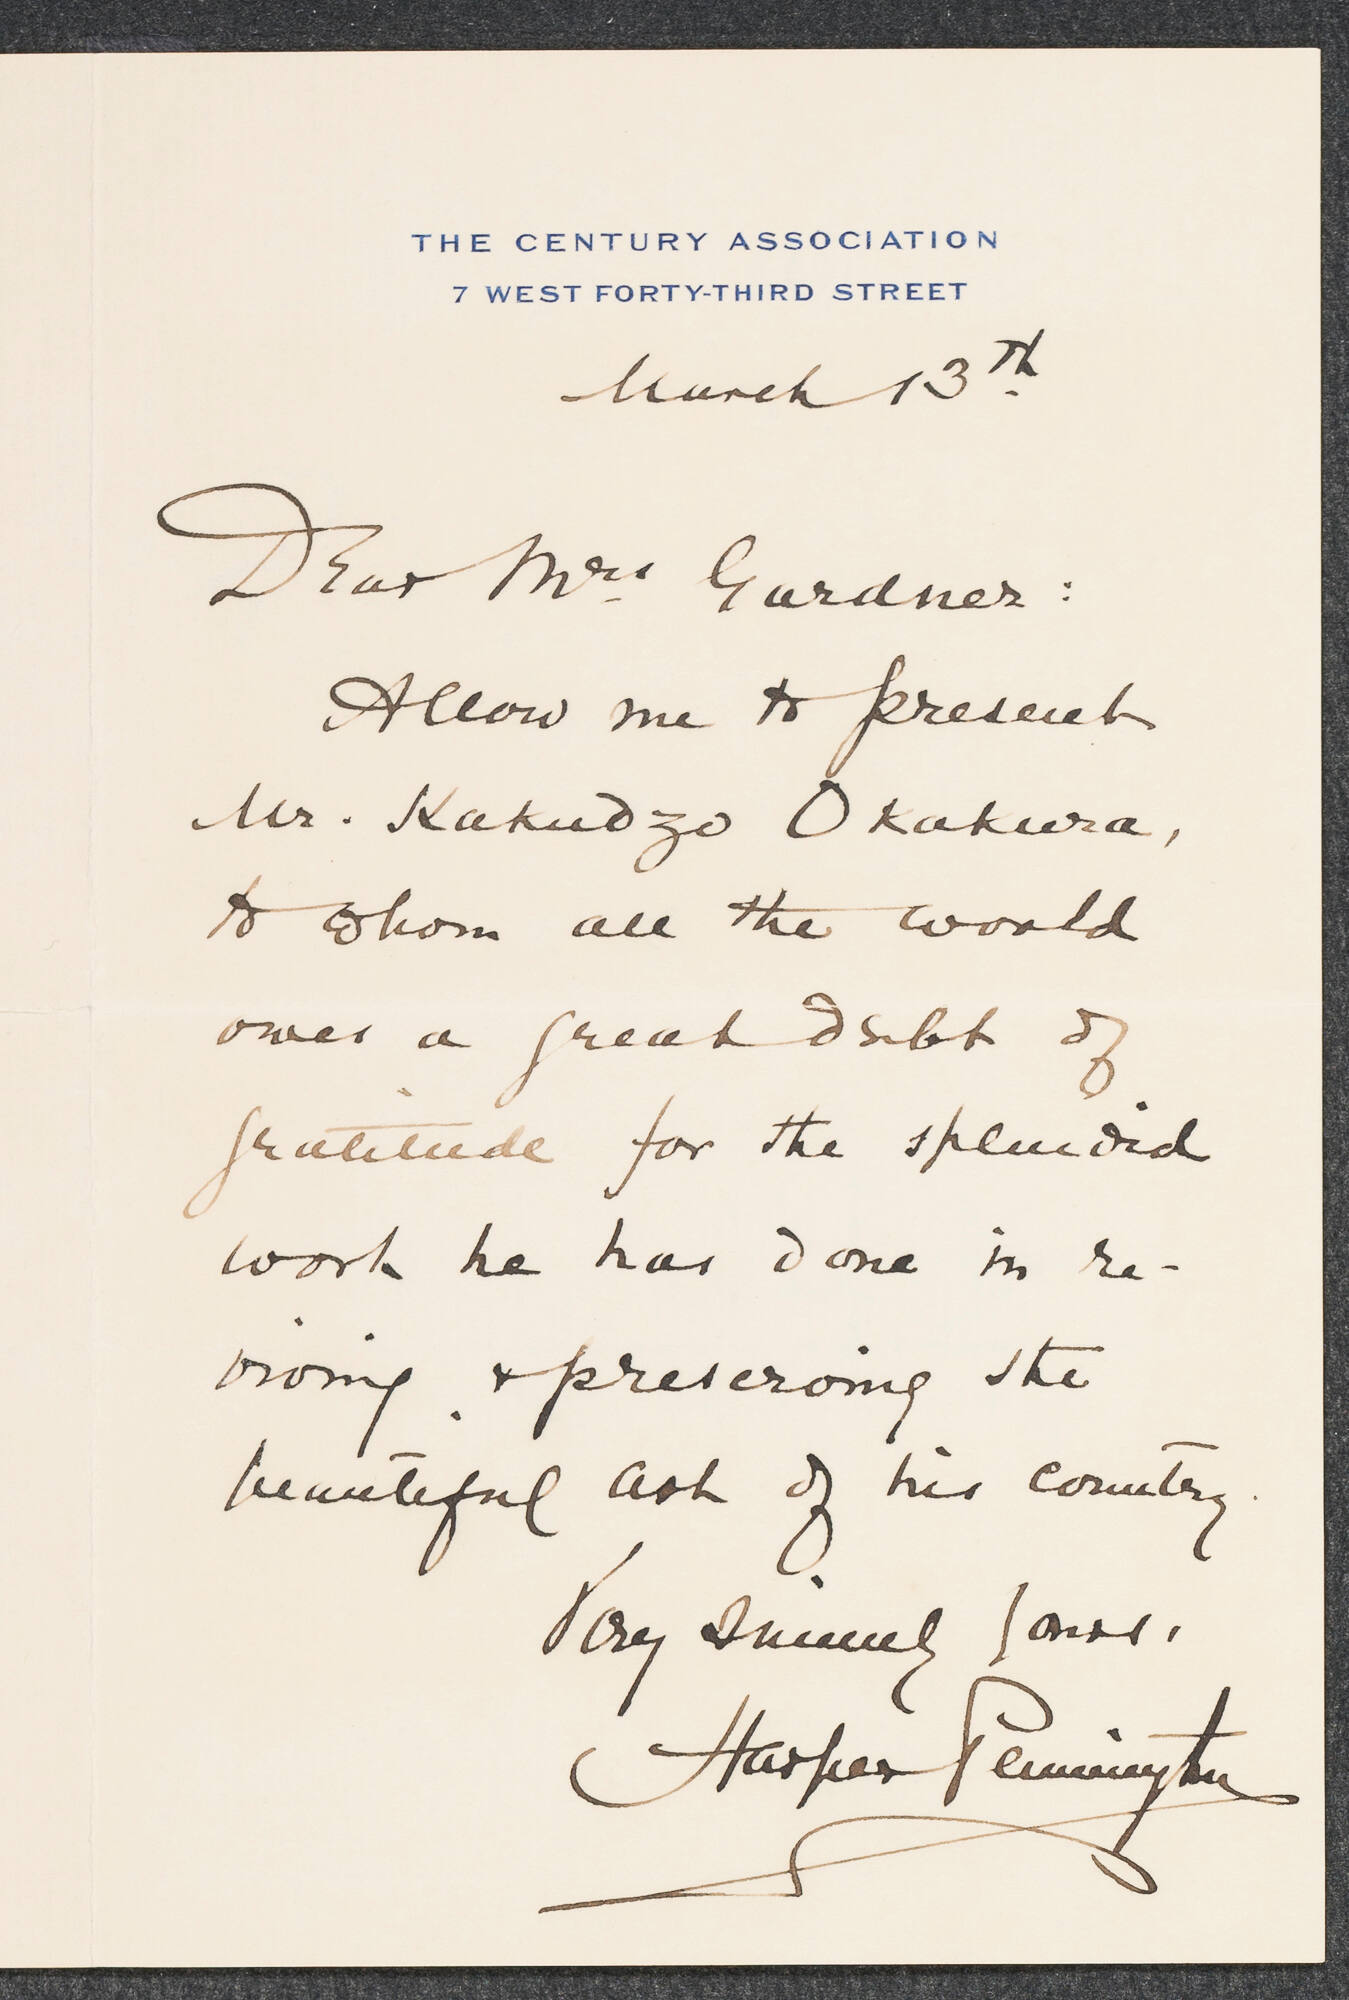 THE CENTURY ASSOCIATION
7 WEST FORTY-THIRD STREET
March 13th.
Dear Mrs. Gardner:
Allow me to present
Mr. Kakudzo Okakura,
to whom all the world
owes a great debt of
gratitude for the splendid
work he has done in re-
viving & preserving the
beautiful art of his country.
Very sincerely yours,
Harper Pennington